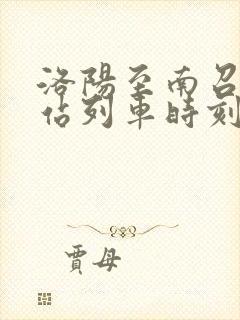 洛陽至南召
佔列車時刻
賈母